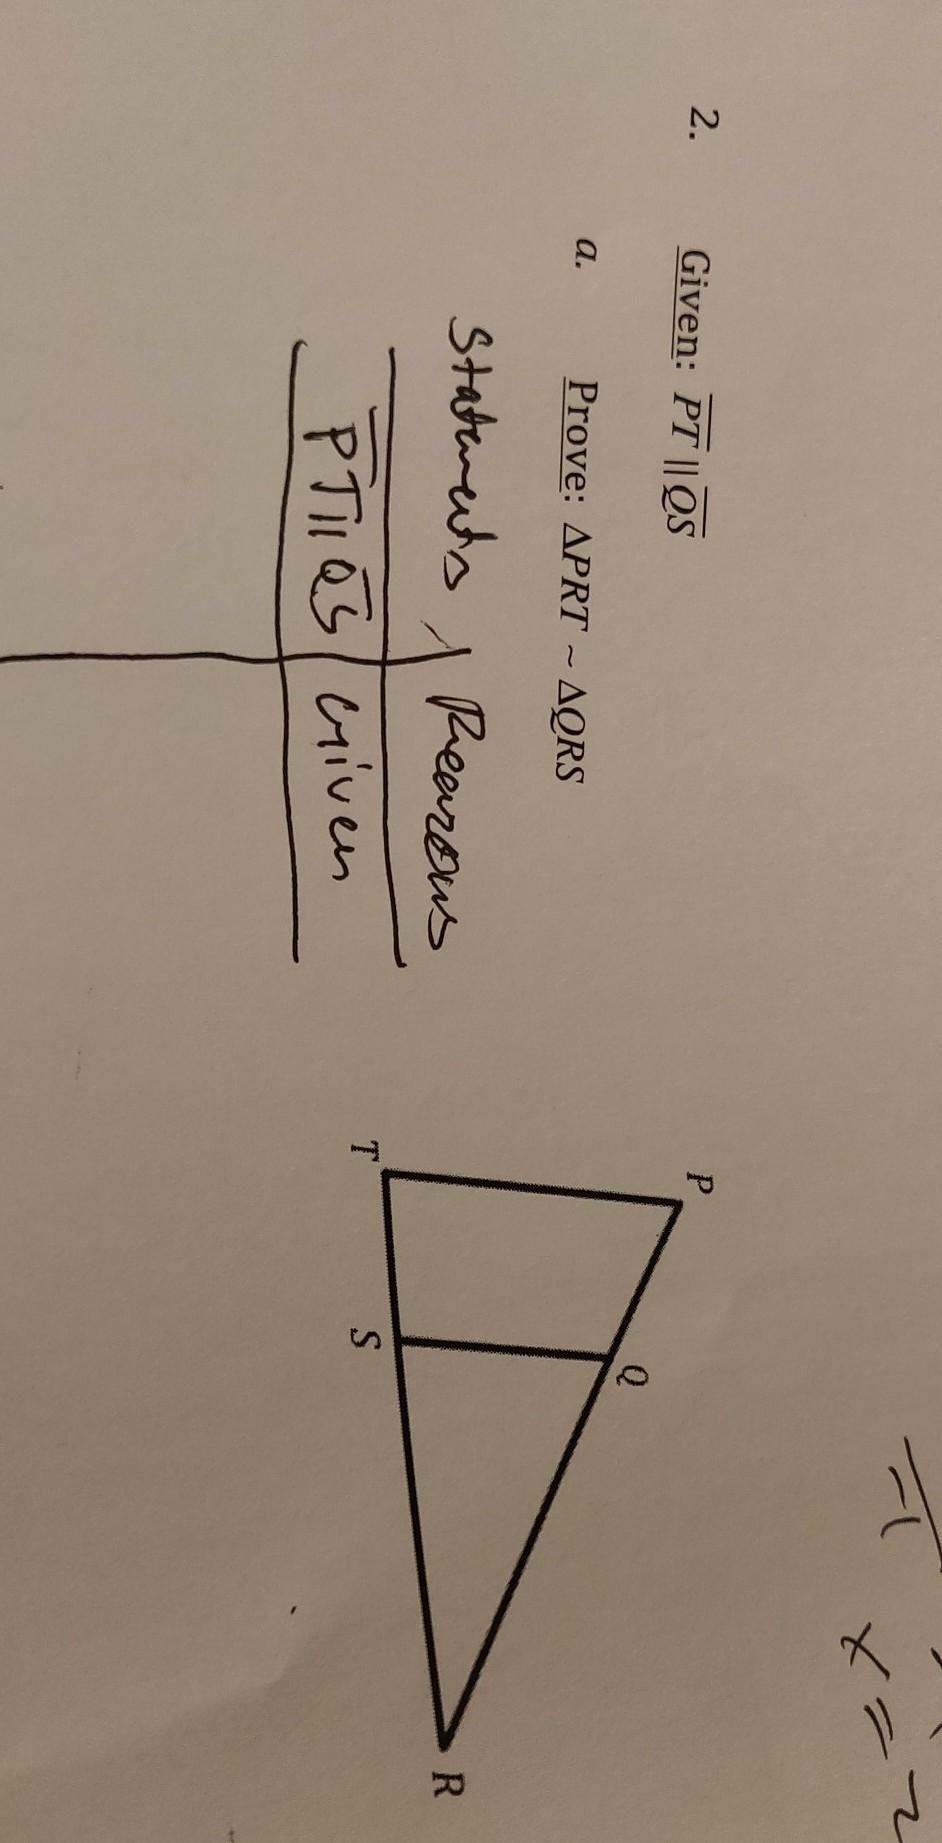 2. Given: PT || QS
a. Prove: ΔPRT ~ ΔQRS
Statements Reasons
PT || QS Given
P
Q
T
S
R
-1
x = 2